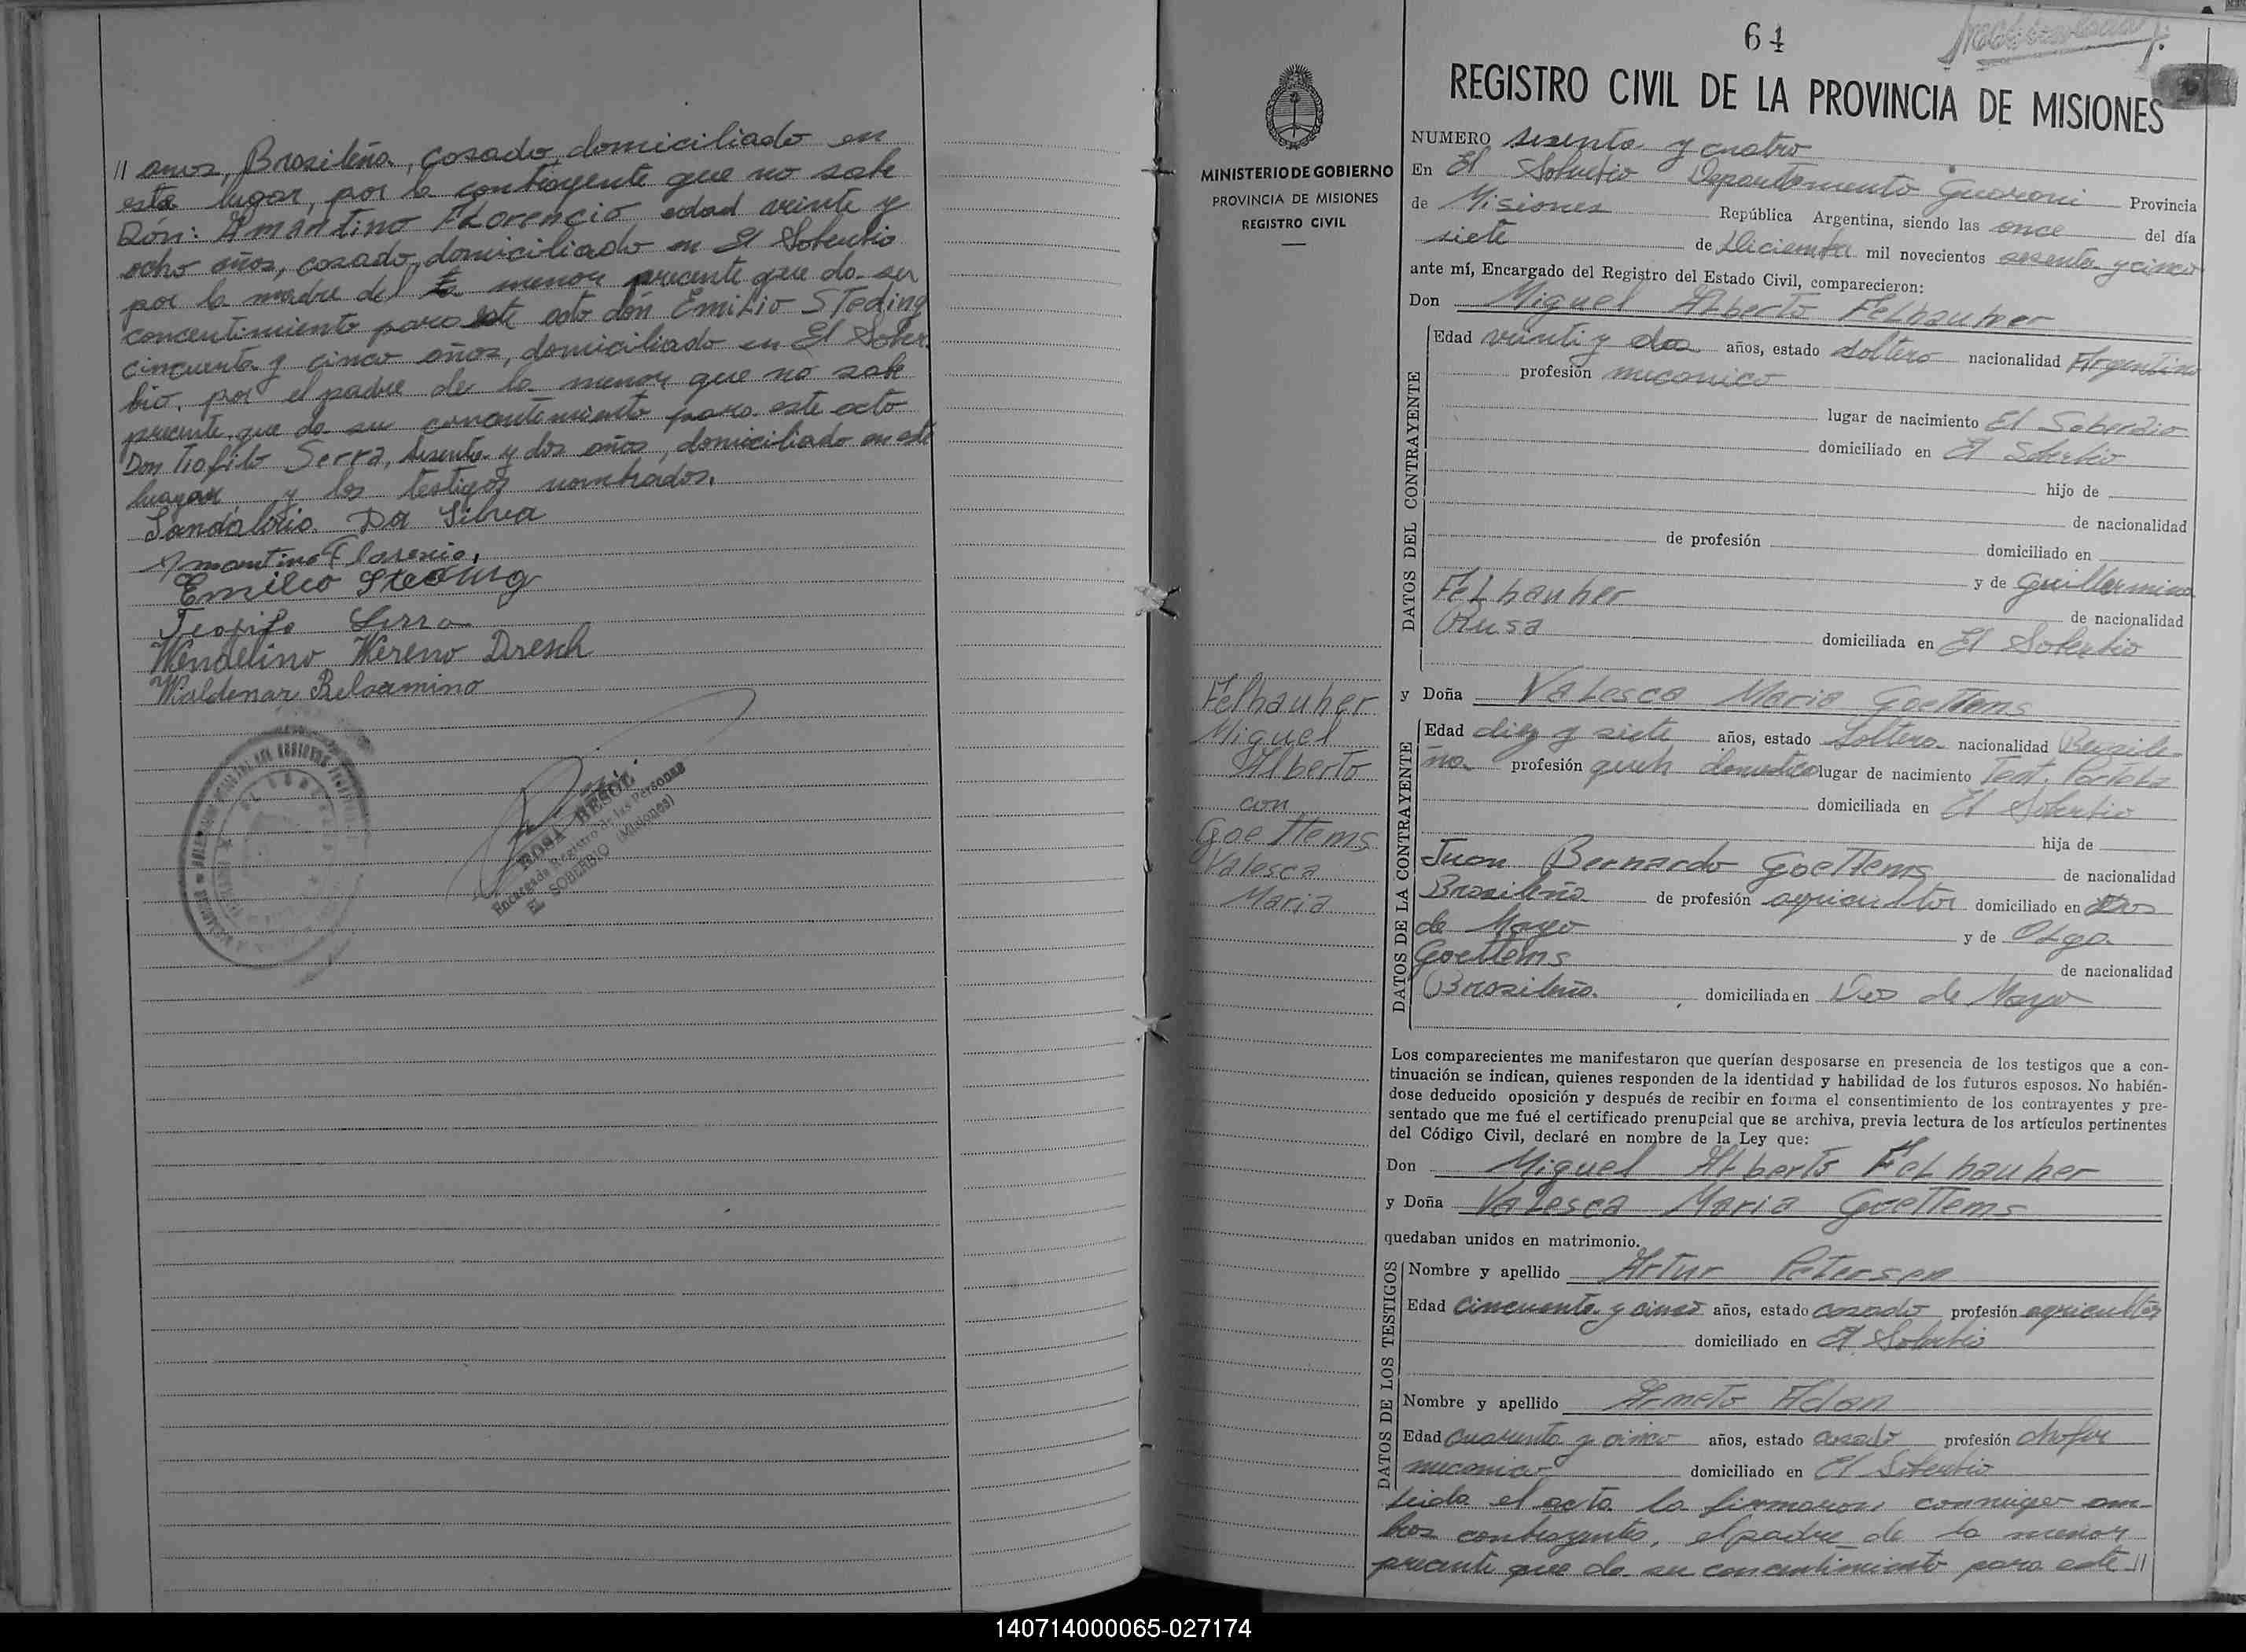 // anos, Brasileña, casado, domiciliado en
este lugar, por la contrayente que no sabe
Dón: Amantino Florencio edad veinte y
ocho años, casado, domiciliado en El Soberbio
por la madre del menor precente que da su
concentimiento para este acto dón Emilio Steding
cincuenta y cinco años, domiciliado en El Sober-
bio, por el padre de la menor que no sabe
precente, que da su concentemiento para este acto
Don Tiofilo Serra, sesenta y dos años, domiciliado en este
lugar, y los testigos nombrados.
Sandalorio Da Silva
Amantino Florencio,
Emilio Steding
Teofilo Serra
Wendelino Wereno Dresch
Waldenar Belarmino
ROSA
Encargada Registro de las Personas
EL SOBERBIO (Misiones)
64
REGISTRO CIVIL DE LA PROVINCIA DE MISIONES
MINISTERIO DE GOBIERNO
PROVINCIA DE MISIONES
REGISTRO CIVIL
NUMERO sesenta y cuatro
En El Soberbio Departamento Guarani Provincia
de Misiones República Argentina, siendo las once del día
siete de Diciembre mil novecientos sesenta y cinco
ante mí, Encargado del Registro del Estado Civil, comparecieron:
Don Miguel Alberto Felhauher
DATOS DEL CONTRAYENTE
Edad veinti y dos años, estado soltero nacionalidad Argentino
profesión mecanico
lugar de nacimiento El Soberbio
domiciliado en El Soberbio
hijo de
de nacionalidad
de profesión domiciliado en
y de Guillermina
Felhauher de nacionalidad
Rusa domiciliada en El Soberbio
Felhauher
Miguel
Alberto
con
Goettems
Valesca
Maria
y Doña Valesca Maria Goettems
DATOS DE LA CONTRAYENTE
Edad diez y siete años, estado soltera nacionalidad Brasile-
ña profesión queh. domestico lugar de nacimiento Tent. Portela
domiciliada en El Soberbio
hija de
Juan Bernardo Goettems de nacionalidad
Brasileña de profesión agricultor domiciliado en Dos
de Mayo y de Olga
Goettems de nacionalidad
Brasileña. domiciliada en Dos de Mayo
Los comparecientes me manifestaron que querían desposarse en presencia de los testigos que a con-
tinuación se indican, quienes responden de la identidad y habilidad de los futuros esposos. No habién-
dose deducido oposición y después de recibir en forma el consentimiento de los contrayentes y pre-
sentado que me fué el certificado prenupcial que se archiva, previa lectura de los artículos pertinentes
del Código Civil, declaré en nombre de la Ley que:
Don Miguel Alberto Felhauher
y Doña Valesca Maria Goettems
quedaban unidos en matrimonio.
DATOS DE LOS TESTIGOS
Nombre y apellido Artur Petersen
Edad cincuenta y cinco años, estado casado profesión agricultor
domiciliado en El Soberbio
Nombre y apellido Armeto Adan
Edad cuarenta y cinco años, estado casado profesión chofer
mecanico domiciliado en El Soberbio
Leida el acta la firmaron conmigo am-
bos contrayentes, el padre de la menor
precente que da su concentimiento para este //
140714000065-027174